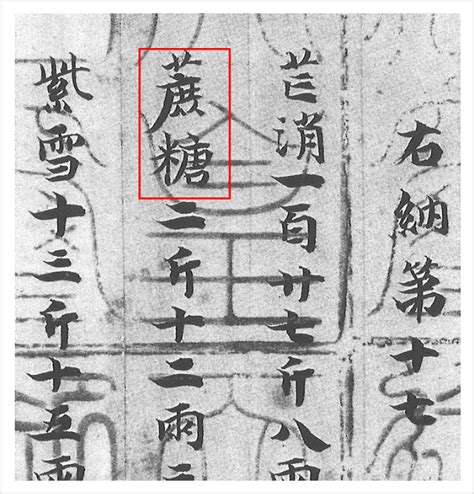 右納第十七
芒消一百廿七斤八兩
蔗糖二斤十二兩
紫雪十三斤十五兩